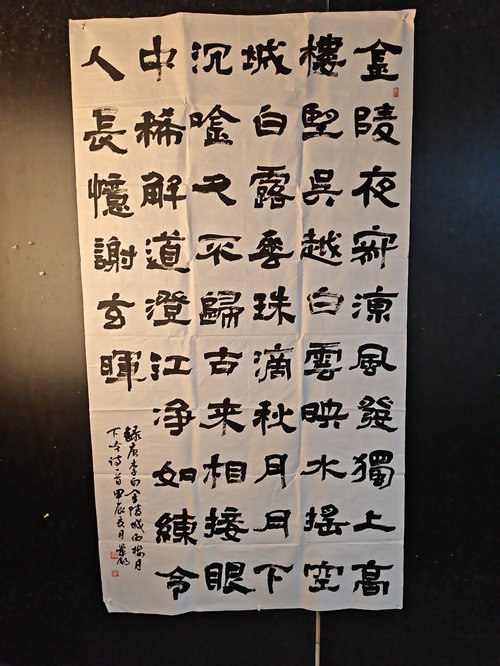 金陵夜寂凉風發獨上高
樓望吳越白雲映水搖空
城白露垂珠滴秋月月下
沉唫久不歸古来相接眼
中稀解道澄江净如練令
人長憶謝玄暉
録唐李白金陵城西楼月
下吟诗一首甲辰夏月